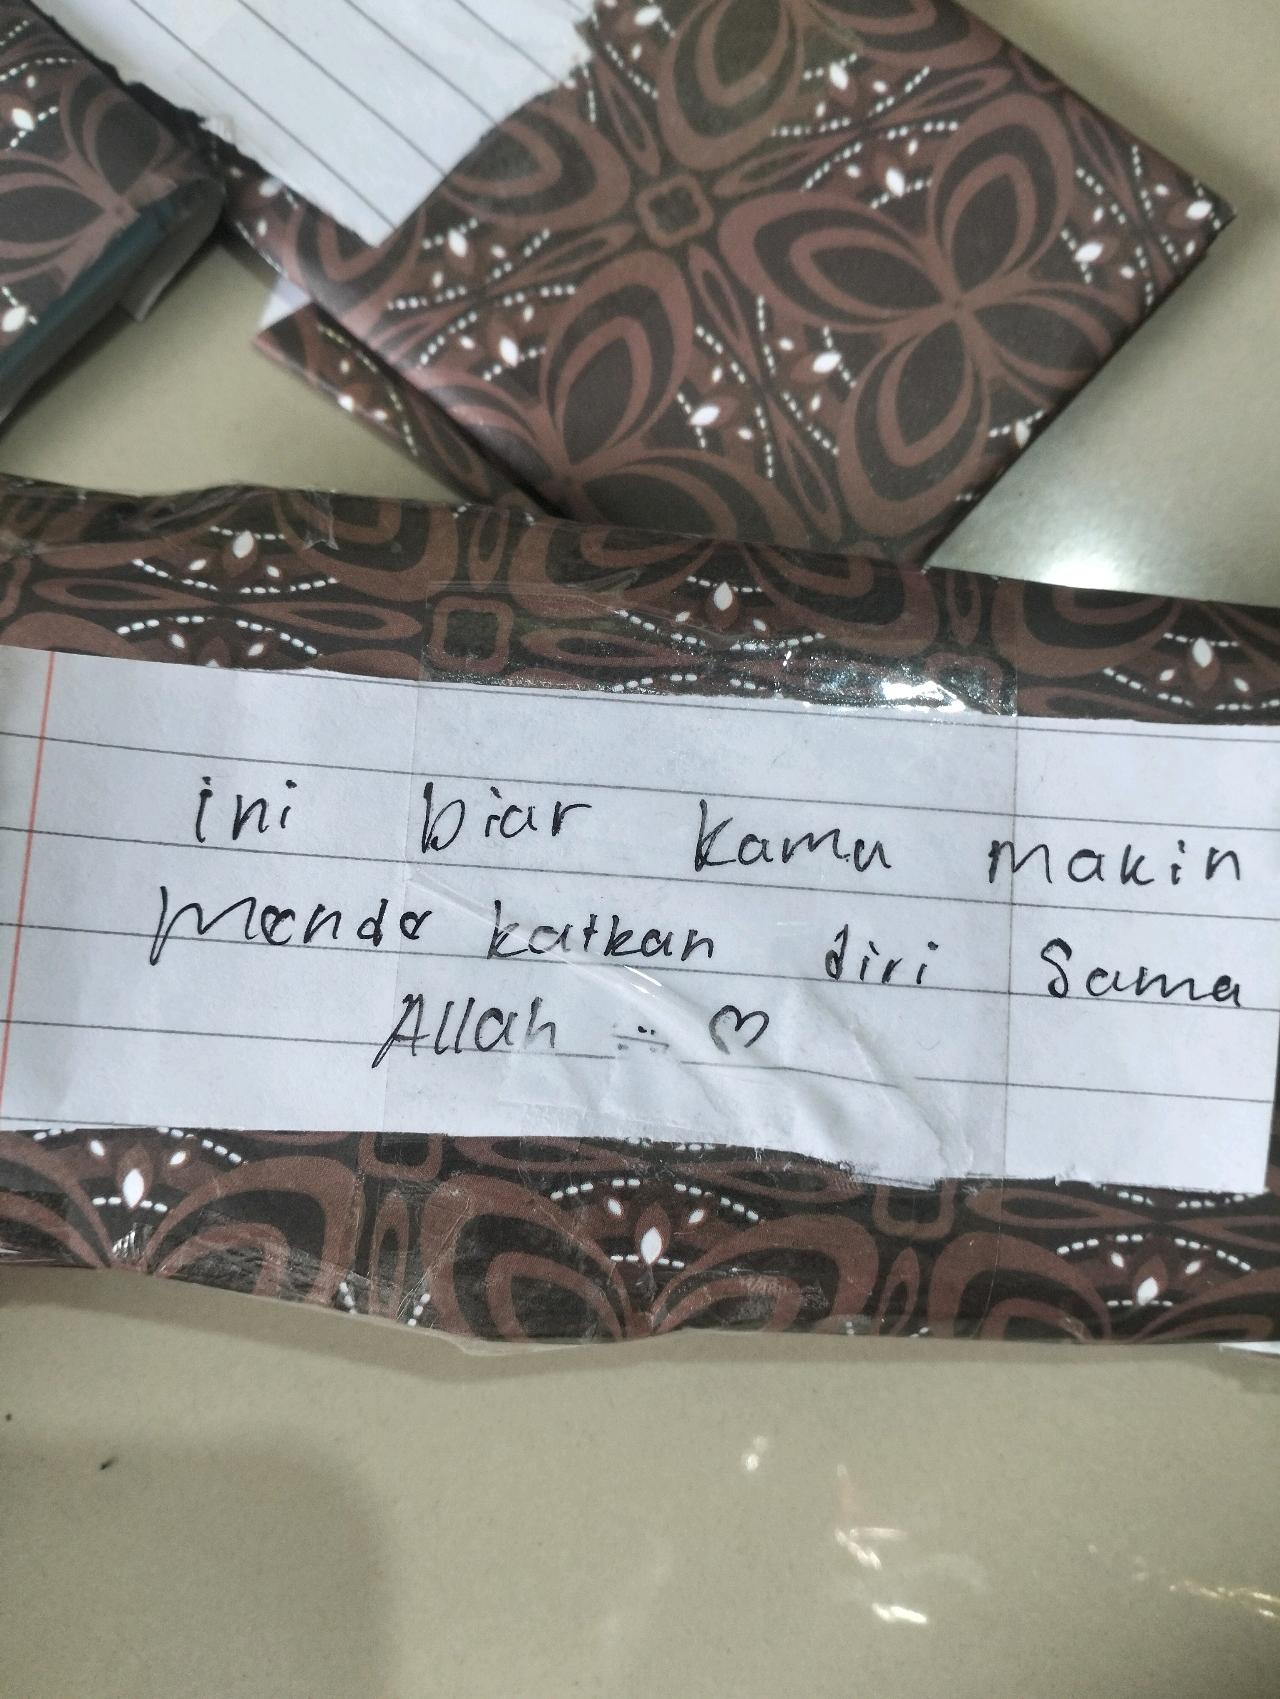 ini biar kamu makin
mende katkan diri sama
Allah ♡